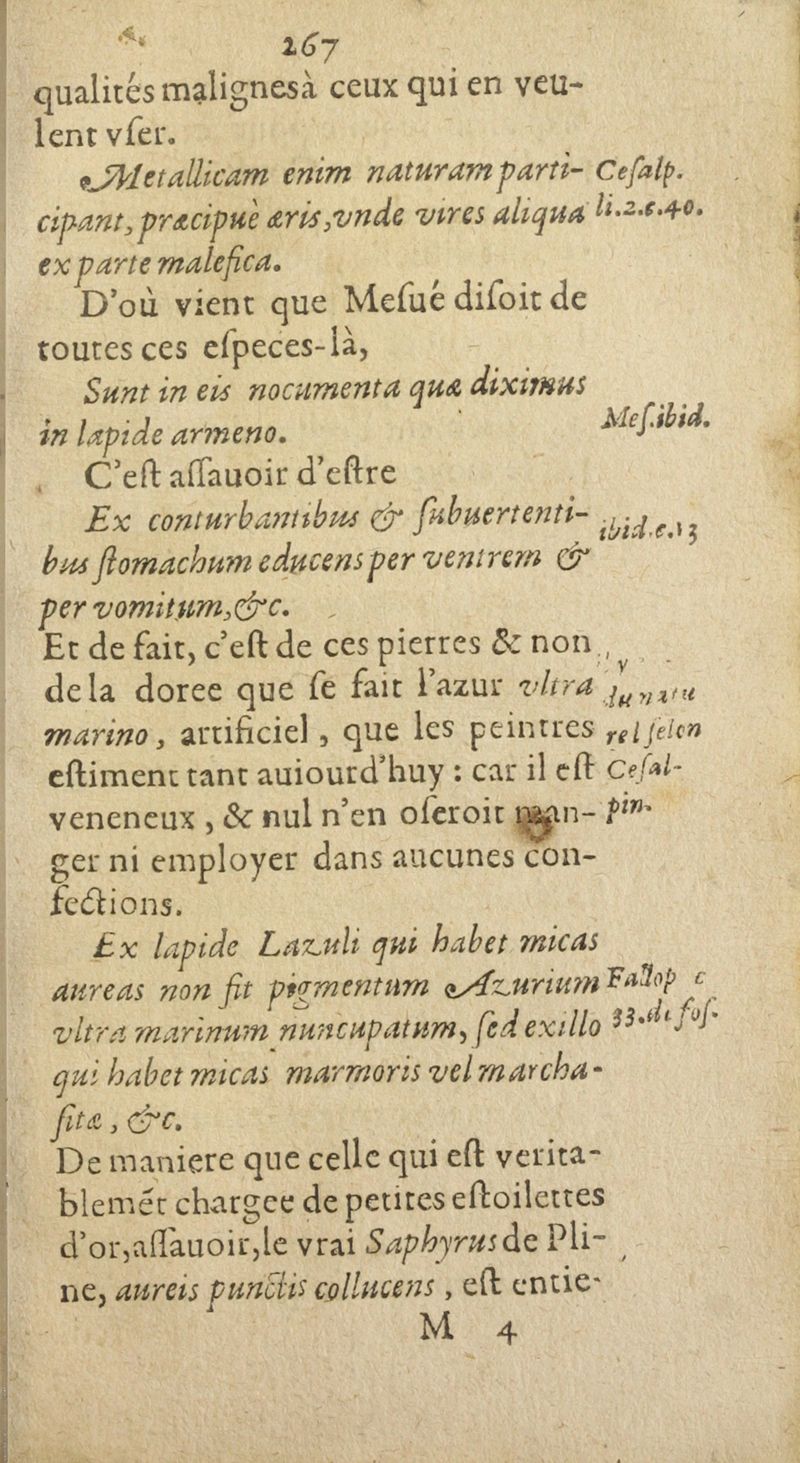 267
qualités malignesà ceux qui en veu-
lent vſer.
Metallicam enim naturam parti- Ceſalp.
cipant, præcipuè æris, vnde vires aliqua li.2.c.40.
ex parte malefica.
D'où vient que Meſué diſoit de
toutes ces eſpeces-là,
Sunt in eis nocumenta quæ diximus
in lapide armeno. Meſ.ibid.
C'eſt aſſauoir d'eſtre
Ex conturbantibus & ſubuertenti- ibid.c.13
bus ſtomachum educens per ventrem &
per vomitum, &c.
Et de fait, c'eſt de ces pierres & non
dela doree que ſe fait l'azur vltra
marino, artificiel, que les peintres
eſtiment tant auiourd'huy : car il eſt Ceſal-
veneneux, & nul n'en oſeroit man- pin.
ger ni employer dans aucunes con-
fections.
Ex lapide Lazuli qui habet micas
aureas non fit pigmentum Azurium Fallop c
vltra marinum nuncupatum, ſed ex illo 33. de foſ.
qui habet micas marmoris vel marcha-
ſitæ, &c.
De maniere que celle qui eſt verita-
blemẽt chargee de petites eſtoilettes
d'or, aſſauoir, le vrai Saphyrus de Pli-
ne, aureis punctis collucens, eſt entie-
M 4